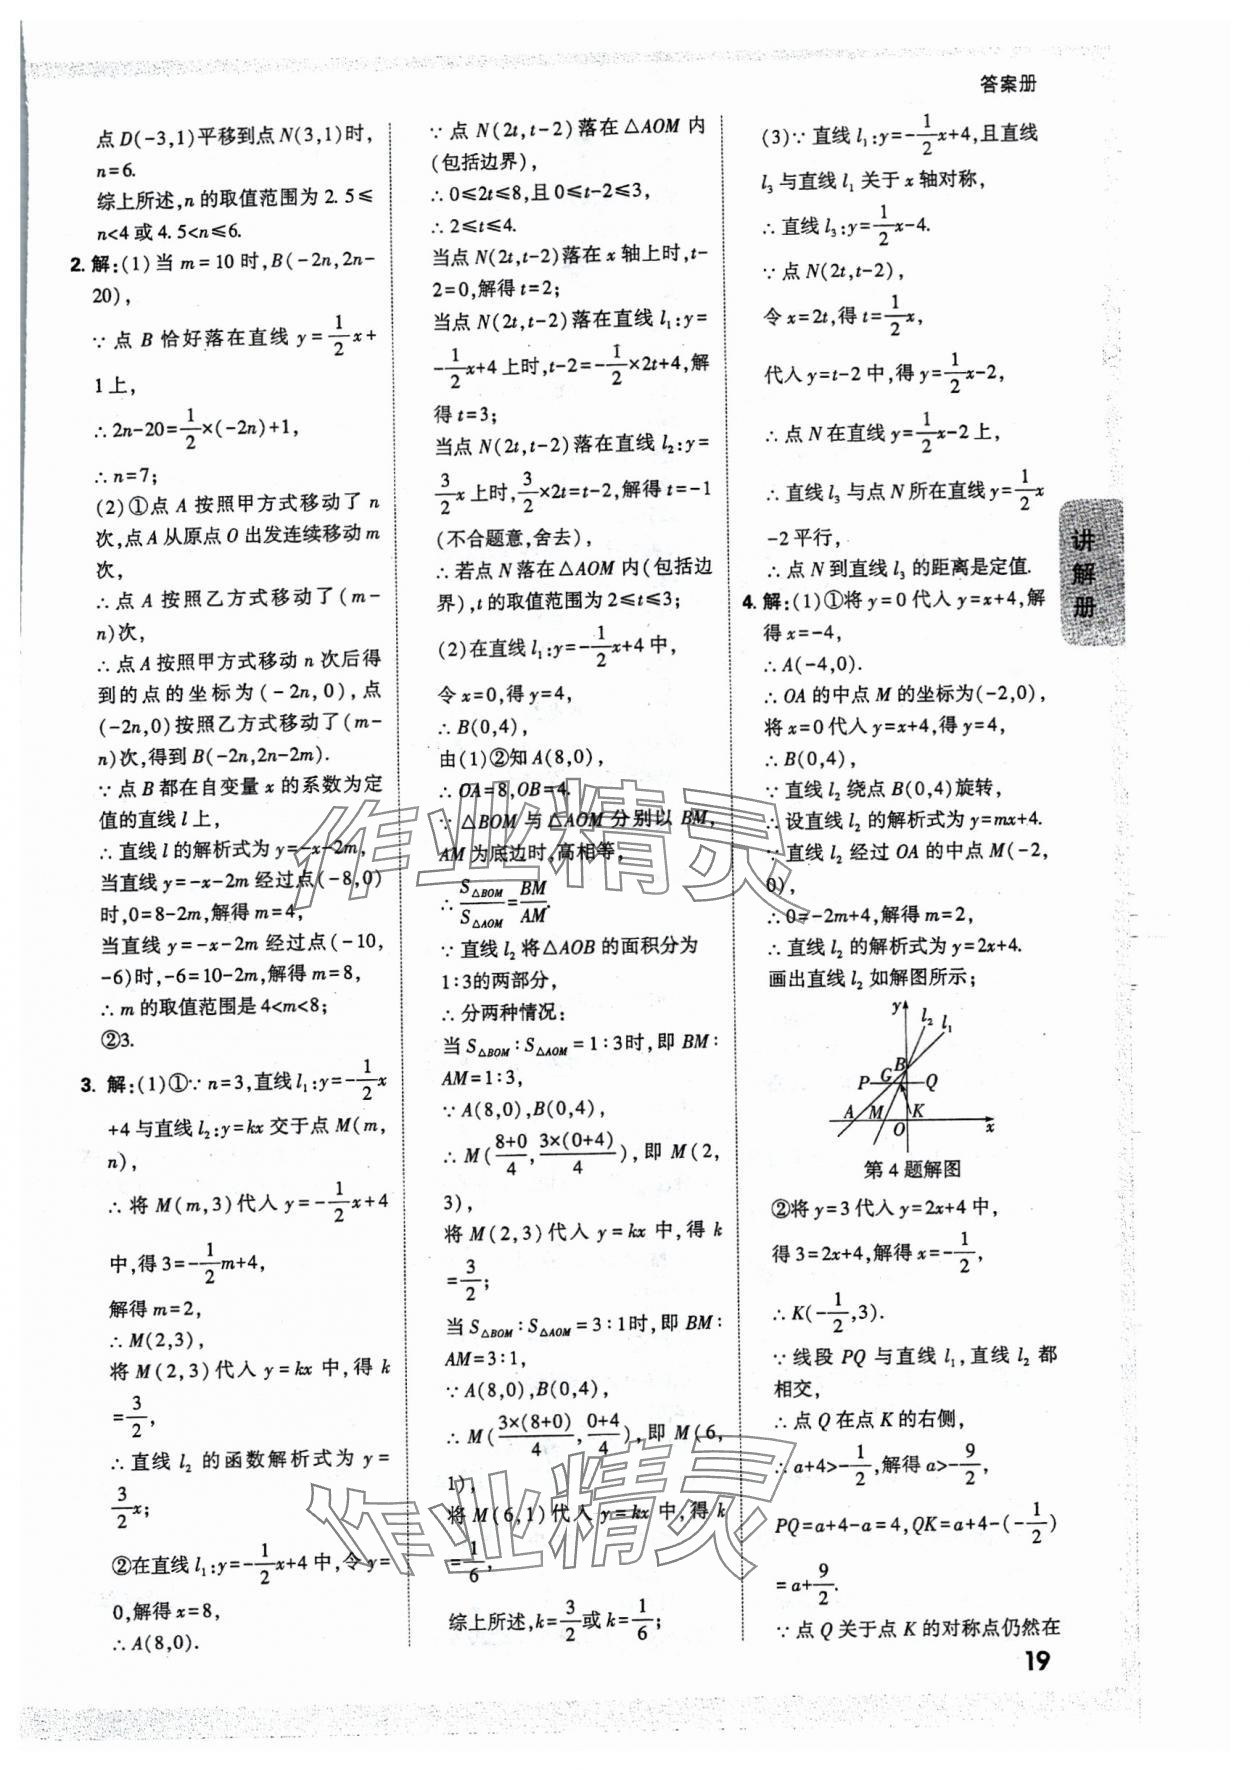 答案册
点D(-3,1)平移到点N(3,1)时,
n=6.
综上所述,n的取值范围为2.5≤
n<4或4.5<n≤6.
2. 解:(1)当m=10时,B(-2n,2n-
20),
∵点B恰好落在直线y=1/2x+
1上,
∴2n-20=1/2×(-2n)+1,
∴n=7;
(2)①点A按照甲方式移动了n
次,点A从原点O出发连续移动m
次,
∴点A按照乙方式移动了(m-
n)次,
∴点A按照甲方式移动n次后得
到的点的坐标为(-2n,0),点
(-2n,0)按照乙方式移动了(m-
n)次,得到B(-2n,2n-2m).
∵点B都在自变量x的系数为定
值的直线l上,
∴直线l的解析式为y=-x-2m,
当直线y=-x-2m经过点(-8,0)
时,0=8-2m,解得m=4,
当直线y=-x-2m经过点(-10,
-6)时,-6=10-2m,解得m=8,
∴m的取值范围是4<m<8;
②3.
3. 解:(1)①∵n=3,直线l₁:y=-1/2x
+4与直线l₂:y=kx交于点M(m,
n),
∴将M(m,3)代入y=-1/2x+4
中,得3=-1/2m+4,
解得m=2,
∴M(2,3),
将M(2,3)代入y=kx中,得k
=3/2,
∴直线l₂的函数解析式为y=
3/2x;
②在直线l₁:y=-1/2x+4中,令y=
0,解得x=8,
∴A(8,0).
∵点N(2t,t-2)落在△AOM内
(包括边界),
∴0≤2t≤8,且0≤t-2≤3,
∴2≤t≤4.
当点N(2t,t-2)落在x轴上时,t-
2=0,解得t=2;
当点N(2t,t-2)落在直线l₁:y=
-1/2x+4上时,t-2=-1/2×2t+4,解
得t=3;
当点N(2t,t-2)落在直线l₂:y=
3/2x上时,3/2×2t=t-2,解得t=-1
(不合题意,舍去),
∴若点N落在△AOM内(包括边
界),t的取值范围为2≤t≤3;
(2)在直线l₁:y=-1/2x+4中,
令x=0,得y=4,
∴B(0,4),
由(1)②知A(8,0),
∴OA=8,OB=4.
∵△BOM与△AOM分别以BM,
AM为底边时,高相等,
∴S△BOM/S△AOM=BM/AM.
∵直线l₂将△AOB的面积分为
1:3的两部分,
∴分两种情况:
当S△BOM:S△AOM=1:3时,即BM:
AM=1:3,
∵A(8,0),B(0,4),
∴M((8+0)/4,3×(0+4)/4),即M(2,
3),
将M(2,3)代入y=kx中,得k
=3/2;
当S△BOM:S△AOM=3:1时,即BM:
AM=3:1,
∵A(8,0),B(0,4),
∴M(3×(8+0)/4,(0+4)/4),即M(6,
1),
将M(6,1)代入y=kx中,得k
=1/6,
综上所述,k=3/2或k=1/6;
(3)∵直线l₁:y=-1/2x+4,且直线
l₃与直线l₁关于x轴对称,
∴直线l₃:y=1/2x-4.
∵点N(2t,t-2),
令x=2t,得t=1/2x,
代入y=t-2中,得y=1/2x-2,
∴点N在直线y=1/2x-2上,
∴直线l₃与点N所在直线y=1/2x
-2平行,
∴点N到直线l₃的距离是定值.
4. 解:(1)①将y=0代入y=x+4,解
得x=-4,
∴A(-4,0).
∴OA的中点M的坐标为(-2,0),
将x=0代入y=x+4,得y=4,
∴B(0,4),
∵直线l₂绕点B(0,4)旋转,
∴设直线l₂的解析式为y=mx+4.
∵直线l₂经过OA的中点M(-2,
0),
∴0=-2m+4,解得m=2,
∴直线l₂的解析式为y=2x+4.
画出直线l₂如解图所示;
y l₂ l₁
B
P G Q
A M K
O x
第4题解图
②将y=3代入y=2x+4中,
得3=2x+4,解得x=-1/2,
∴K(-1/2,3).
∵线段PQ与直线l₁,直线l₂都
相交,
∴点Q在点K的右侧,
∴a+4>-1/2,解得a>-9/2,
PQ=a+4-a=4,QK=a+4-(-1/2)
=a+9/2.
∵点Q关于点K的对称点仍然在
讲解册
19
作业精灵
作业精灵